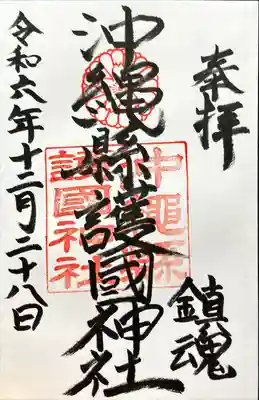 奉拝
鎮魂
沖縄縣護國神社
沖縄縣
護國神社
令和六年十二月二十八日